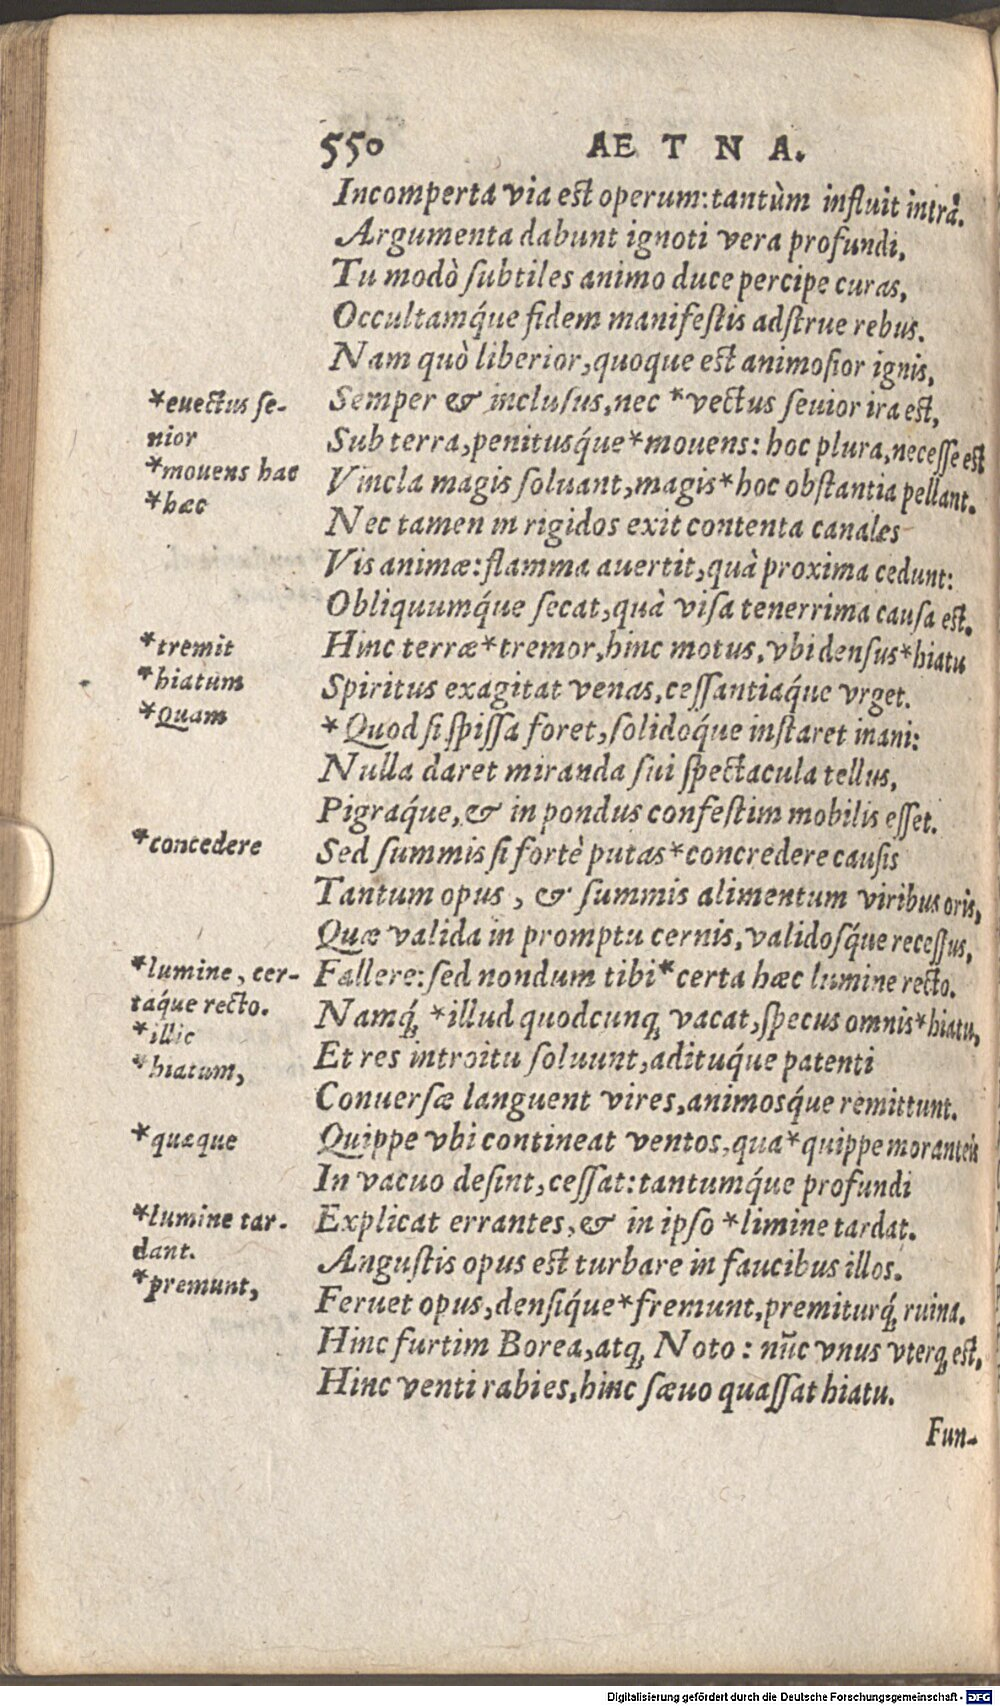 550 AETNA.
Incomperta via est operum: tantùm influit intrà.
Argumenta dabunt ignoti vera profundi,
Tu modò ſubtiles animo duce percipe curas,
Occultamq́ue fidem manifeſtis adſtrue rebus.
Nam quò liberior, quoque est animoſior ignis,
Semper & incluſus, nec *vectus ſeuior ira est,
Sub terra, penitusq́ue *mouens: hoc plura, neceſſe est
Vincla magis ſoluant, magis *hoc obſtantia pellant.
Nec tamen in rigidos exit contenta canales
Vis animæ: flamma auertit, quà proxima cedunt:
Obliquumq́ue ſecat, quà viſa tenerrima cauſa est.
Hinc terræ *tremor, hinc motus, vbi denſus *hiatu
Spiritus exagitat venas, ceſſantiaq́ue vrget.
*Quod ſi ſpiſſa foret, ſolidoq́ue inſtaret inani:
Nulla daret miranda ſui ſpectacula tellus,
Pigraq́ue, & in pondus confeſtim mobilis eſſet.
Sed ſummis ſi fortè putas *concredere cauſis
Tantum opus, & ſummis alimentum viribus oris,
Quæ valida in promptu cernis, validoſq́ue receſſus,
Fallere: ſed nondum tibi *certa hæc lumine recto.
Namq́; *illud quodcunq; vacat, ſpecus omnis *hiatu,
Et res introitu ſoluunt, adituq́ue patenti
Conuerſæ languent vires, animosq́ue remittunt.
Quippe vbi contineat ventos, qua *quippe moranteis
In vacuo deſint, ceſſat: tantumq́ue profundi
Explicat errantes, & in ipſo *limine tardat.
Anguſtis opus est turbare in faucibus illos.
Feruet opus, denſiq́ue *fremunt, premiturq́; ruina.
Hinc furtim Borea, atq; Noto: nūc vnus vterq; est,
Hinc venti rabies, hinc ſæuo quaſſat hiatu.
Fun-
*euectus ſe-
nior
*mouens hac
*hæc
*tremit
*hiatum
*Quam
*concedere
*lumine, cer-
taq́ue recto.
*illic
*hiatum,
*quæque
*lumine tar-
dant.
*premunt,
Digitalisierung gefördert durch die Deutsche Forschungsgemeinschaft - DFG